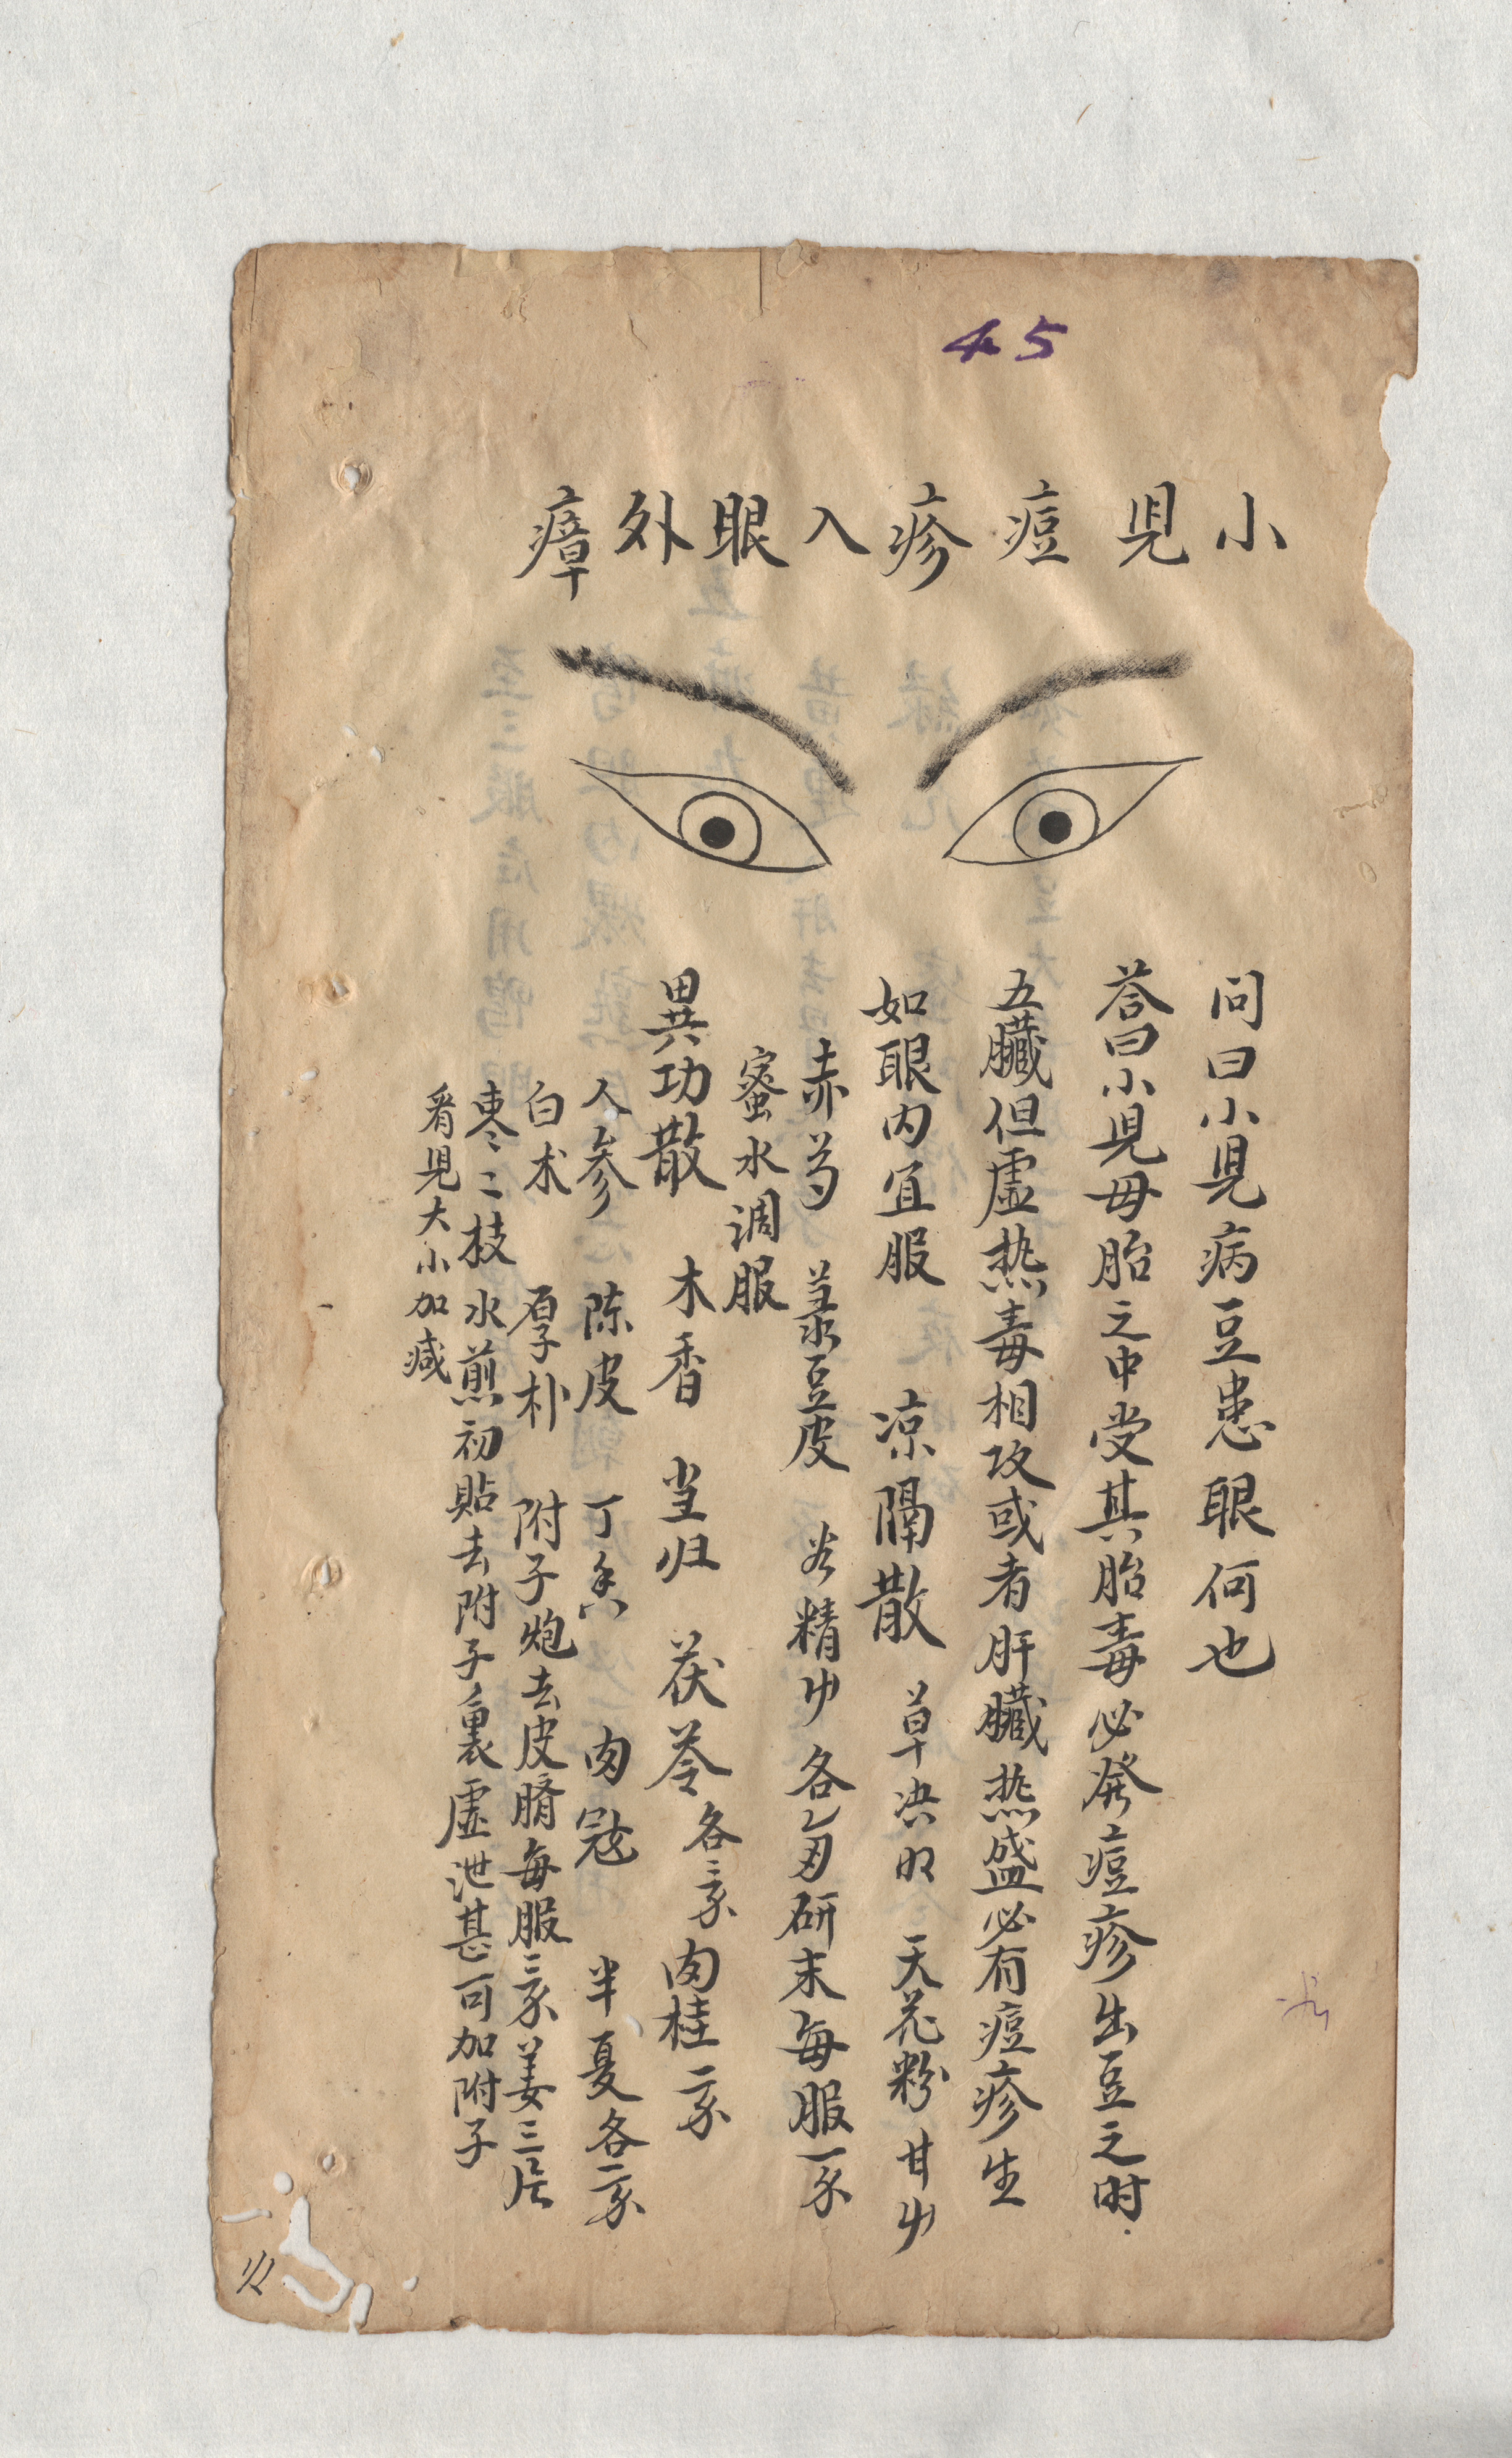 45
小児痘疹入眼外瘴
问曰小児病豆患眼何也
荅曰小児毋胎之中受其胎毒必發痘疹出豆之时
五臓但虚热毒相攻或者肝臓热盛必有痘疹生
如眼内宜服 凉隔散 草决明 天花粉 甘草
赤芍 菉豆皮 谷精草 各 研末每服一
蜜水调服
異功散 木香 当归 茯苓各三 肉桂二
人参 陈皮 丁香 肉蔻 半夏各一
白术 厚朴 附子炮去皮臍每服三 姜三片
枣二枝水煎初貼去附子裏虚泄甚可加附子
看児大小加减